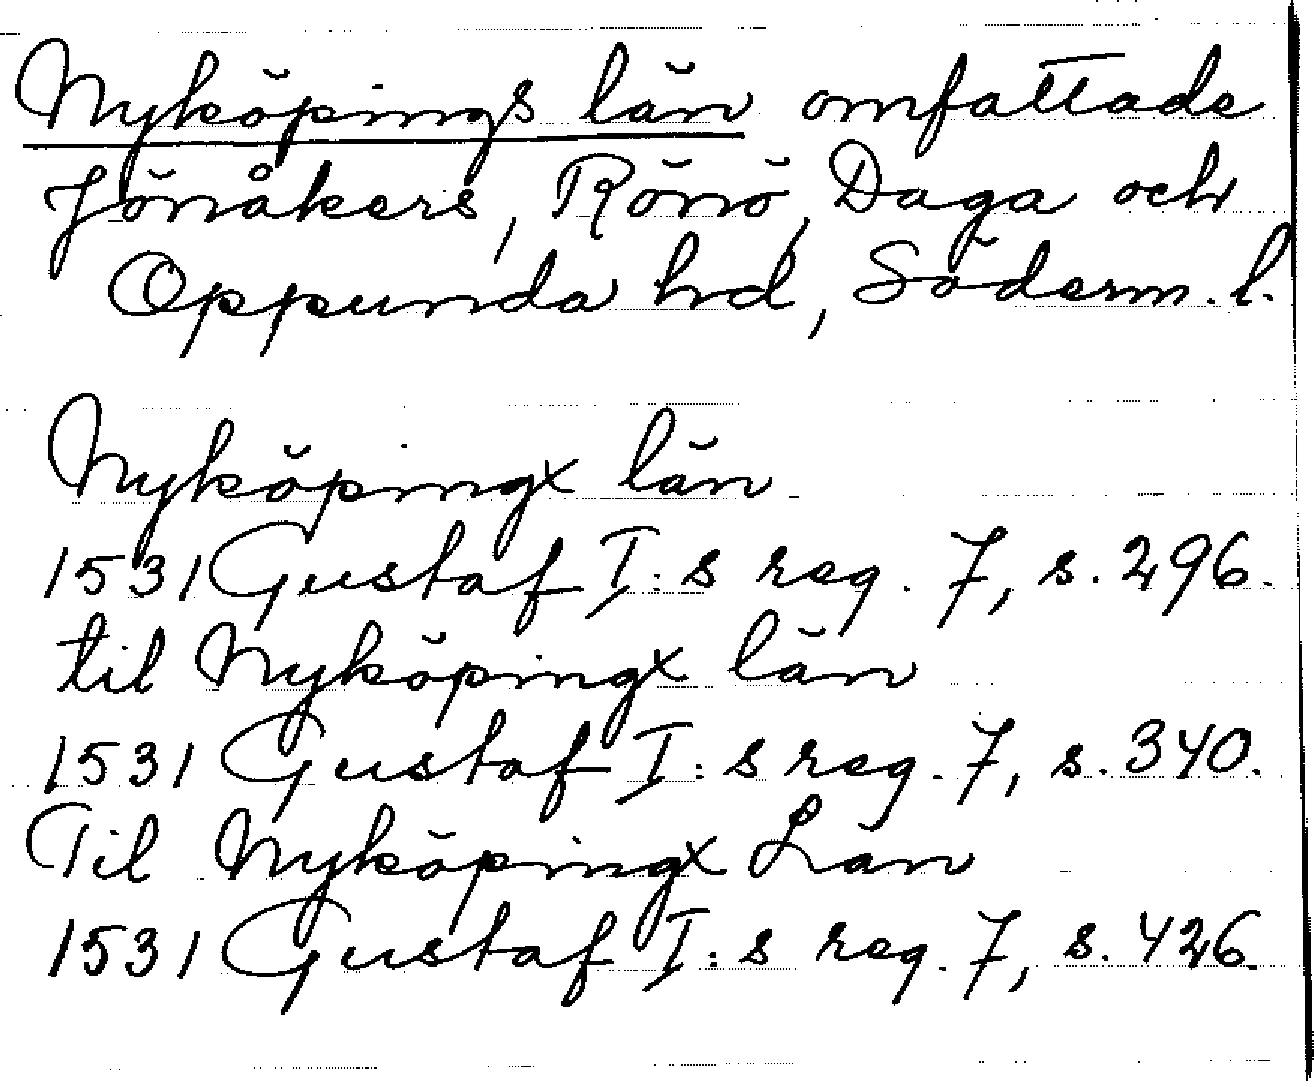 Nyköpings län omfattade
Jönåkers, Rönö, Daga och
Oppunda hd, Söderm. l.
Nyköpingx län
1531 Gustaf I:s reg. 7, s. 296.
til Nyköpingx län
1531 Gustaf I:s reg. 7, s. 340.
Til Nyköpingx Län
1531 Gustaf I:s reg. 7, s. 426.